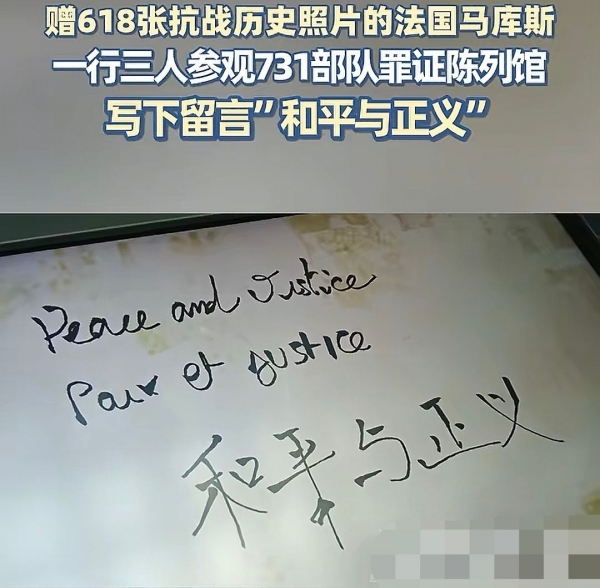 赠618张抗战历史照片的法国马库斯
一行三人参观731部队罪证陈列馆
写下留言”和平与正义”
Peace and Justice
Paix et Justice
和平与正义